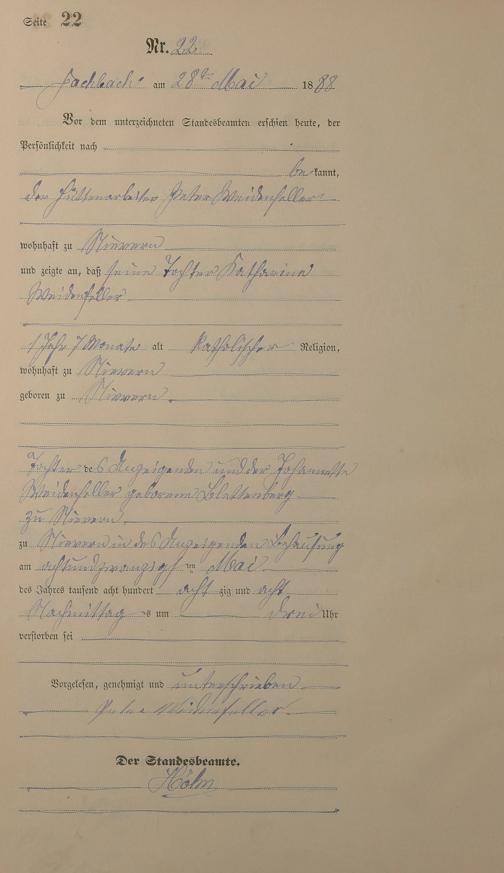 Seite 22
Nr. 22
Fachbach am 28ten Mai 1888
Vor dem unterzeichneten Standesbeamten erschien heute, der
Persönlichkeit nach
be kannt,
der Hüttenarbeiter Peter Weidenfeller
wohnhaft zu Nievern
und zeigte an, daß seine Tochter Katharina
Weidenfeller
1 Jahr 7 Monate alt katholischer Religion,
wohnhaft zu Nievern
geboren zu Nievern.
Tochter des Anzeigenden und der Johannetta
Weidenfeller geborene Blettenberg
zu Nievern
zu Nievern in des Anzeigenden Behausung
am achtundzwanzigsten Mai
des Jahres tausend acht hundert acht zig und acht
Nachmittags um drei Uhr
verstorben sei
Vorgelesen, genehmigt und unterschrieben
Peter Weidenfeller
Der Standesbeamte.